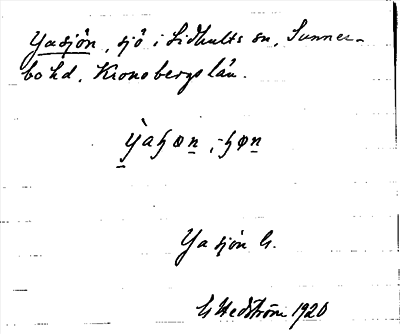 Yasjön, sjö i Lidhults sn, Sunner-
bo hd, Kronobergs län.
Yasjön G.
G Hedström 1920